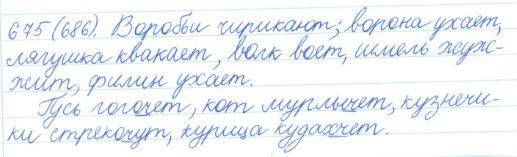 675(686). Воробьи чирикают; ворона ухает,
лягушка квакает, волк воет, шмель жуж-
жит, филин ухает.
Гусь гогочет, кот мурлычет, кузнечи-
ки стрекочут, курица кудахчет.